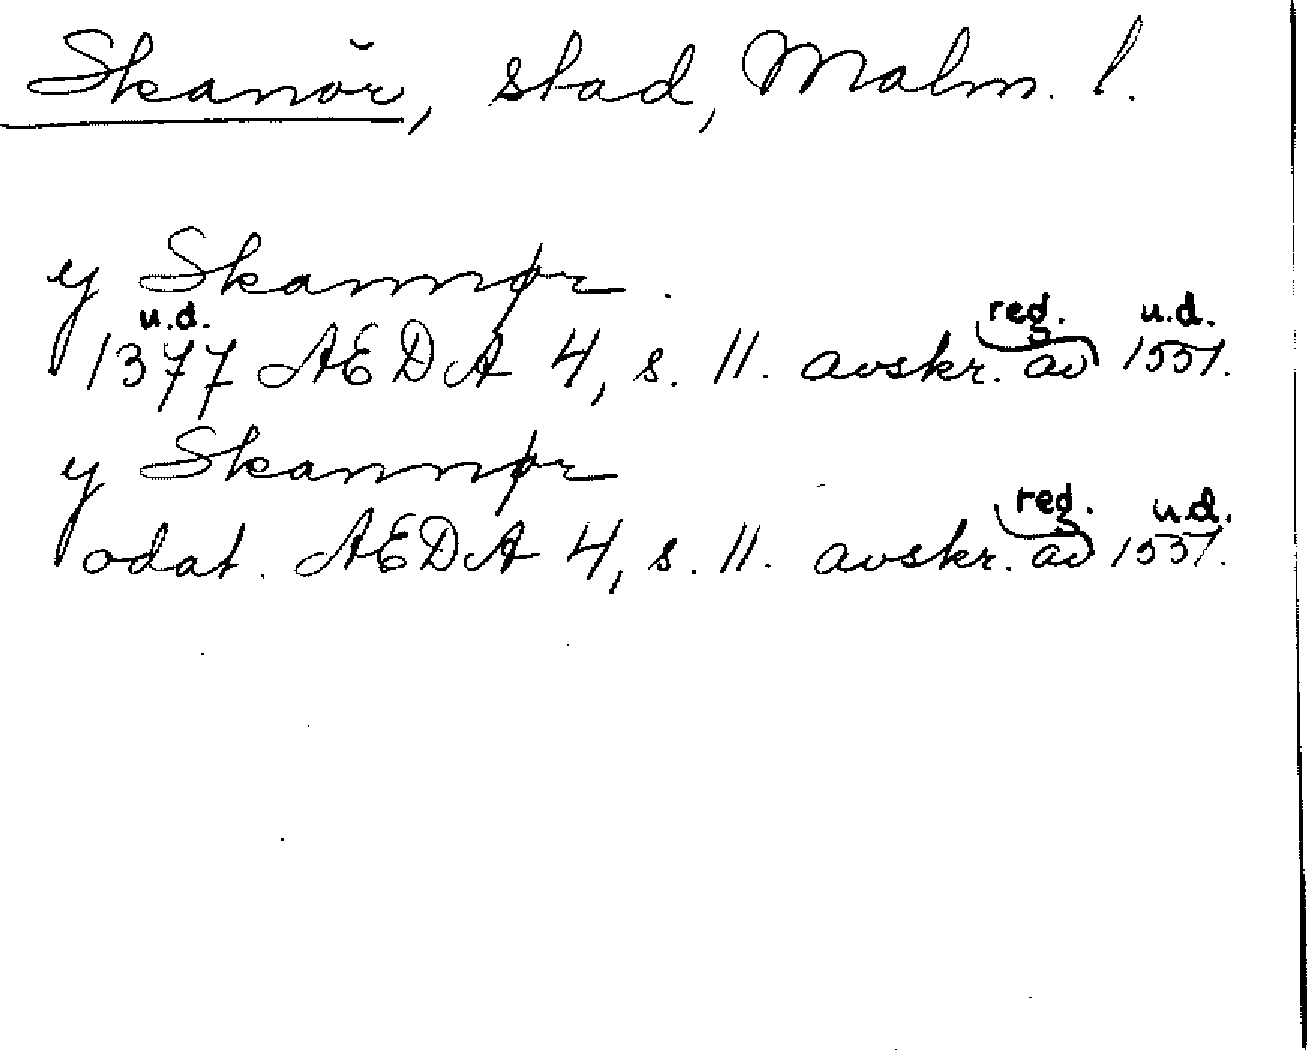 Skanör, stad, Malm. l.
y Skannør.
u.d. reg. u.d.
1377 AEDA 4, s. 11. avskr. av 1551.
y Skannør
reg. u.d.
odat. AEDA 4, s. 11. avskr. av 1551.